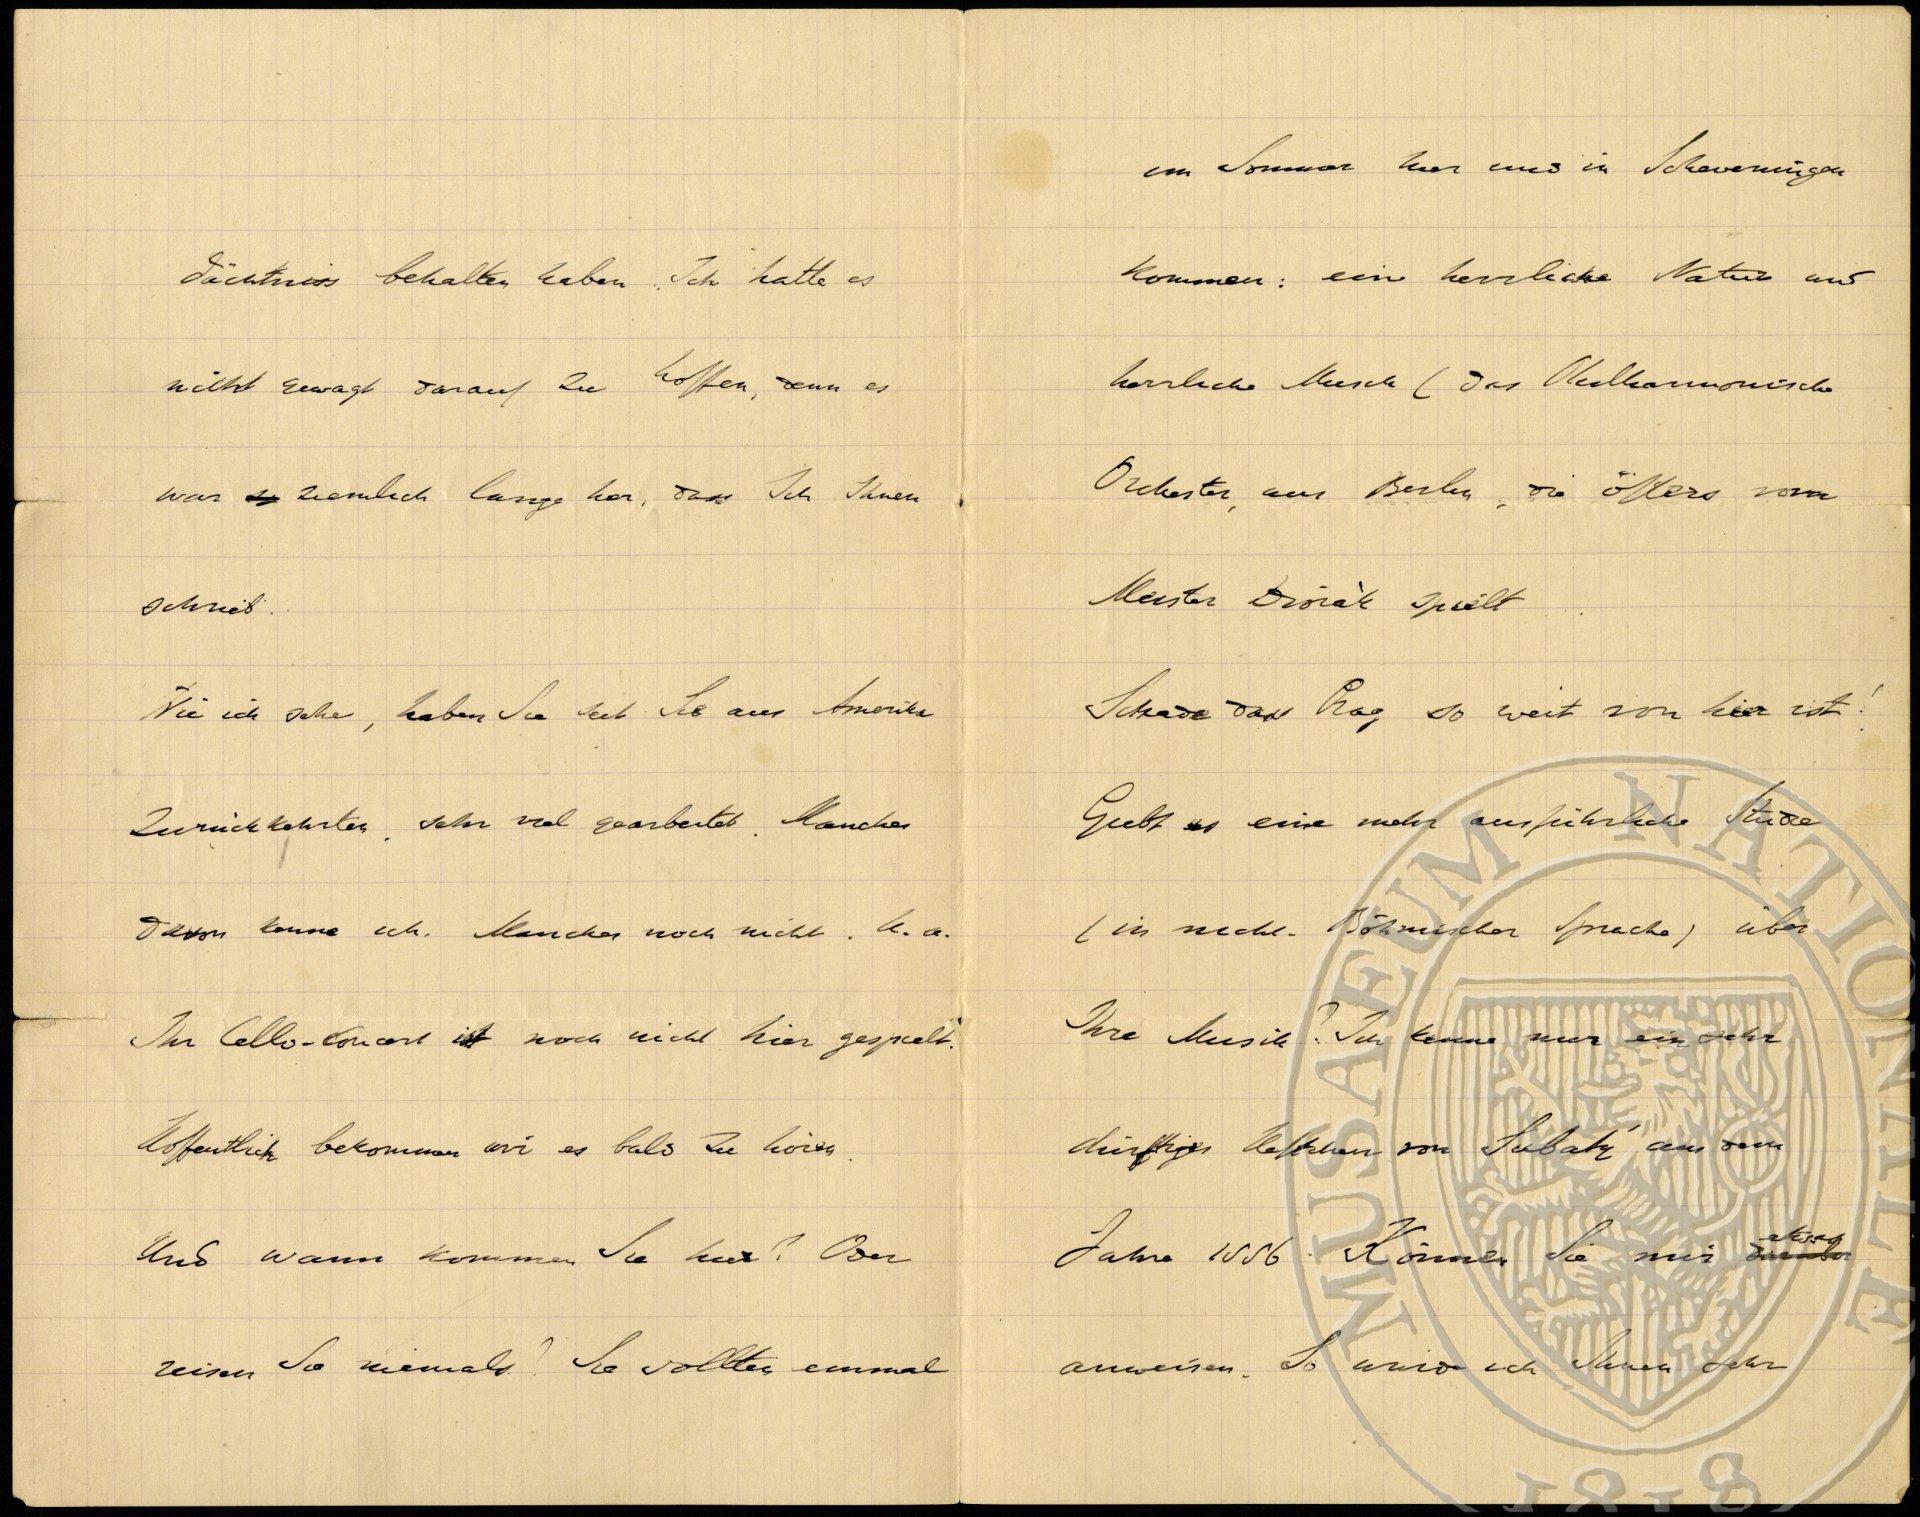 dächtniss behalten haben. Ich hatte es
nicht gewagt darauf zu hoffen, denn es
war so ziemlich lange her, dass Ich Ihnen
schrieb.
Wie ich sehe, haben Sie seit Sie aus Amerika
zurückkehrten, sehr viel gearbeitet. Manches
davon kenne ich. Manches noch nicht. U. a.
Ihr Cello-Concert ist noch nicht hier gespielt.
Hoffentlich bekommen wir es bald zu hören.
Und wann kommen Sie hier? Oder
reisen Sie niemals? Sie sollten einmal
im Sommer hier und in Scheveningen
kommen: eine herrliche Natur und
herrliche Musik (das Philharmonische
Orchester, aus Berlin, die öfters vom
Meister Dvořák spielt
Schade dass Prag so weit von hier ist!
Giebt es eine mehr ausführliche Studie
(in nicht-Böhmischer Sprache) über
Ihre Musik? Ich kenne nur ein sehr
dürftiges Heftchen von Šubatý aus dem
Jahre 1886. Können Sie mir etwas
anweisen. So würde ich Ihnen sehr
MUSAEUM NATIONALE
1818